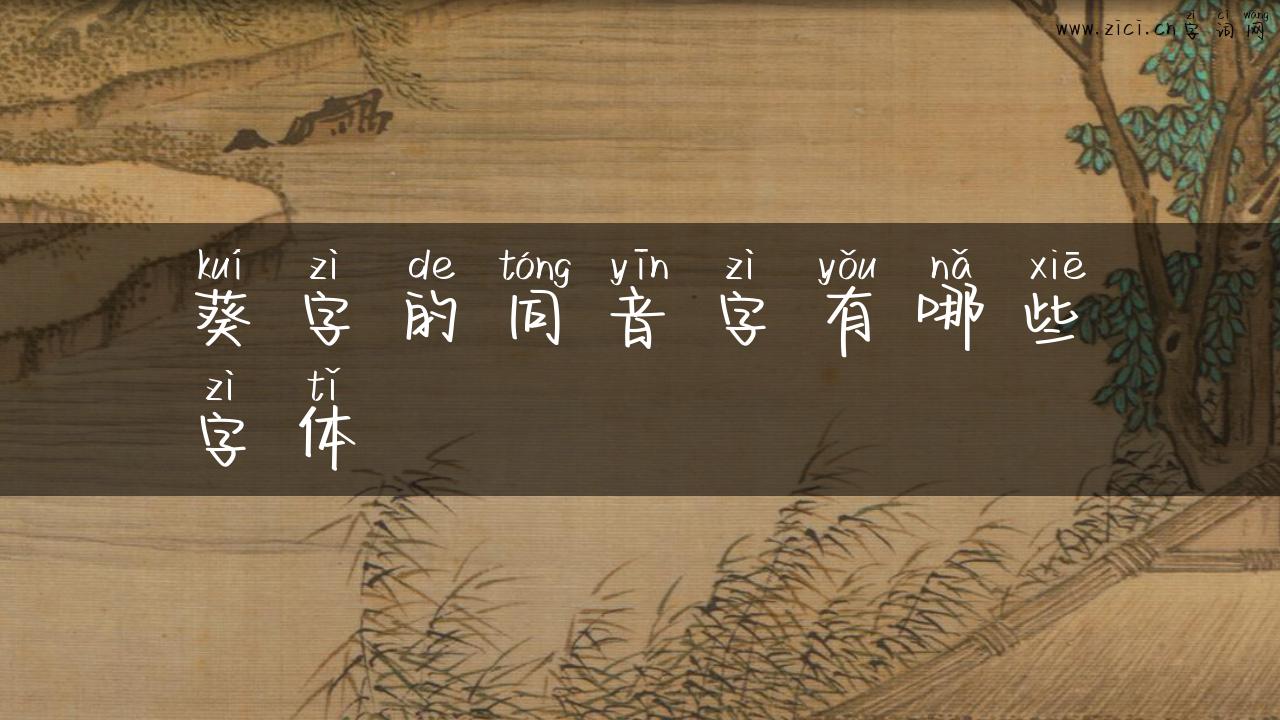 zì cí wǎng
www.zici.cn字词网
kuí zì de tóng yīn zì yǒu nǎ xiē
葵字的同音字有哪些
zì tǐ
字体